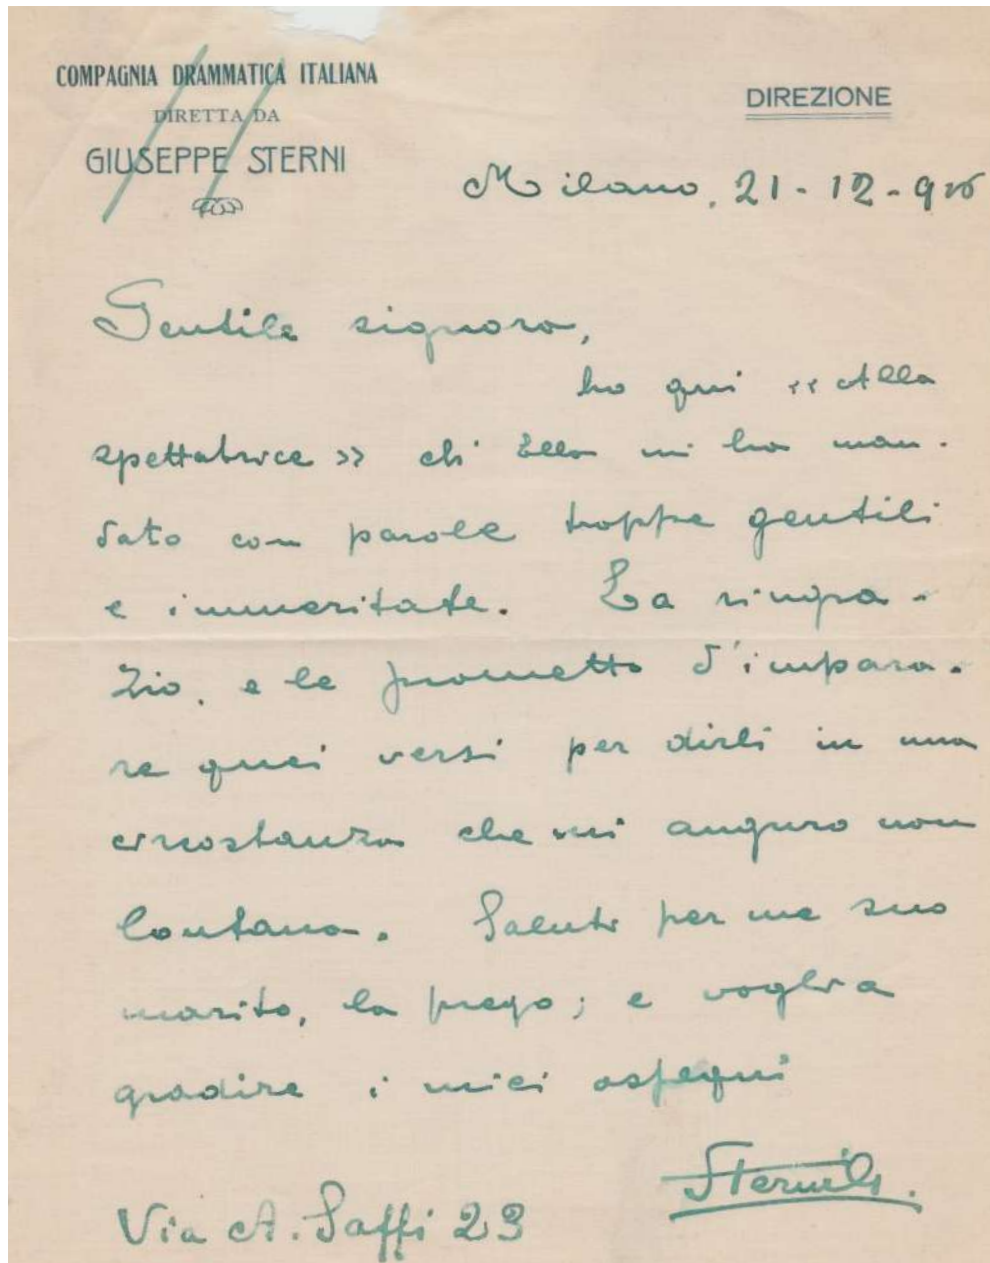 COMPAGNIA DRAMMATICA ITALIANA
DIRETTA DA
GIUSEPPE STERNI
DIREZIONE
Milano, 21-12-926
Gentile signora,
ho qui « Alla
spettatrice » ch'Ella mi ha man-
dato con parole troppe gentili
e immeritate. La ringra-
zio, e le prometto d'impara-
re quei versi per dirli in una
circostanza che mi auguro non
lontana. Saluti per me suo
marito, la prego; e voglia
gradire i miei ossequi
Via A. Saffi 23